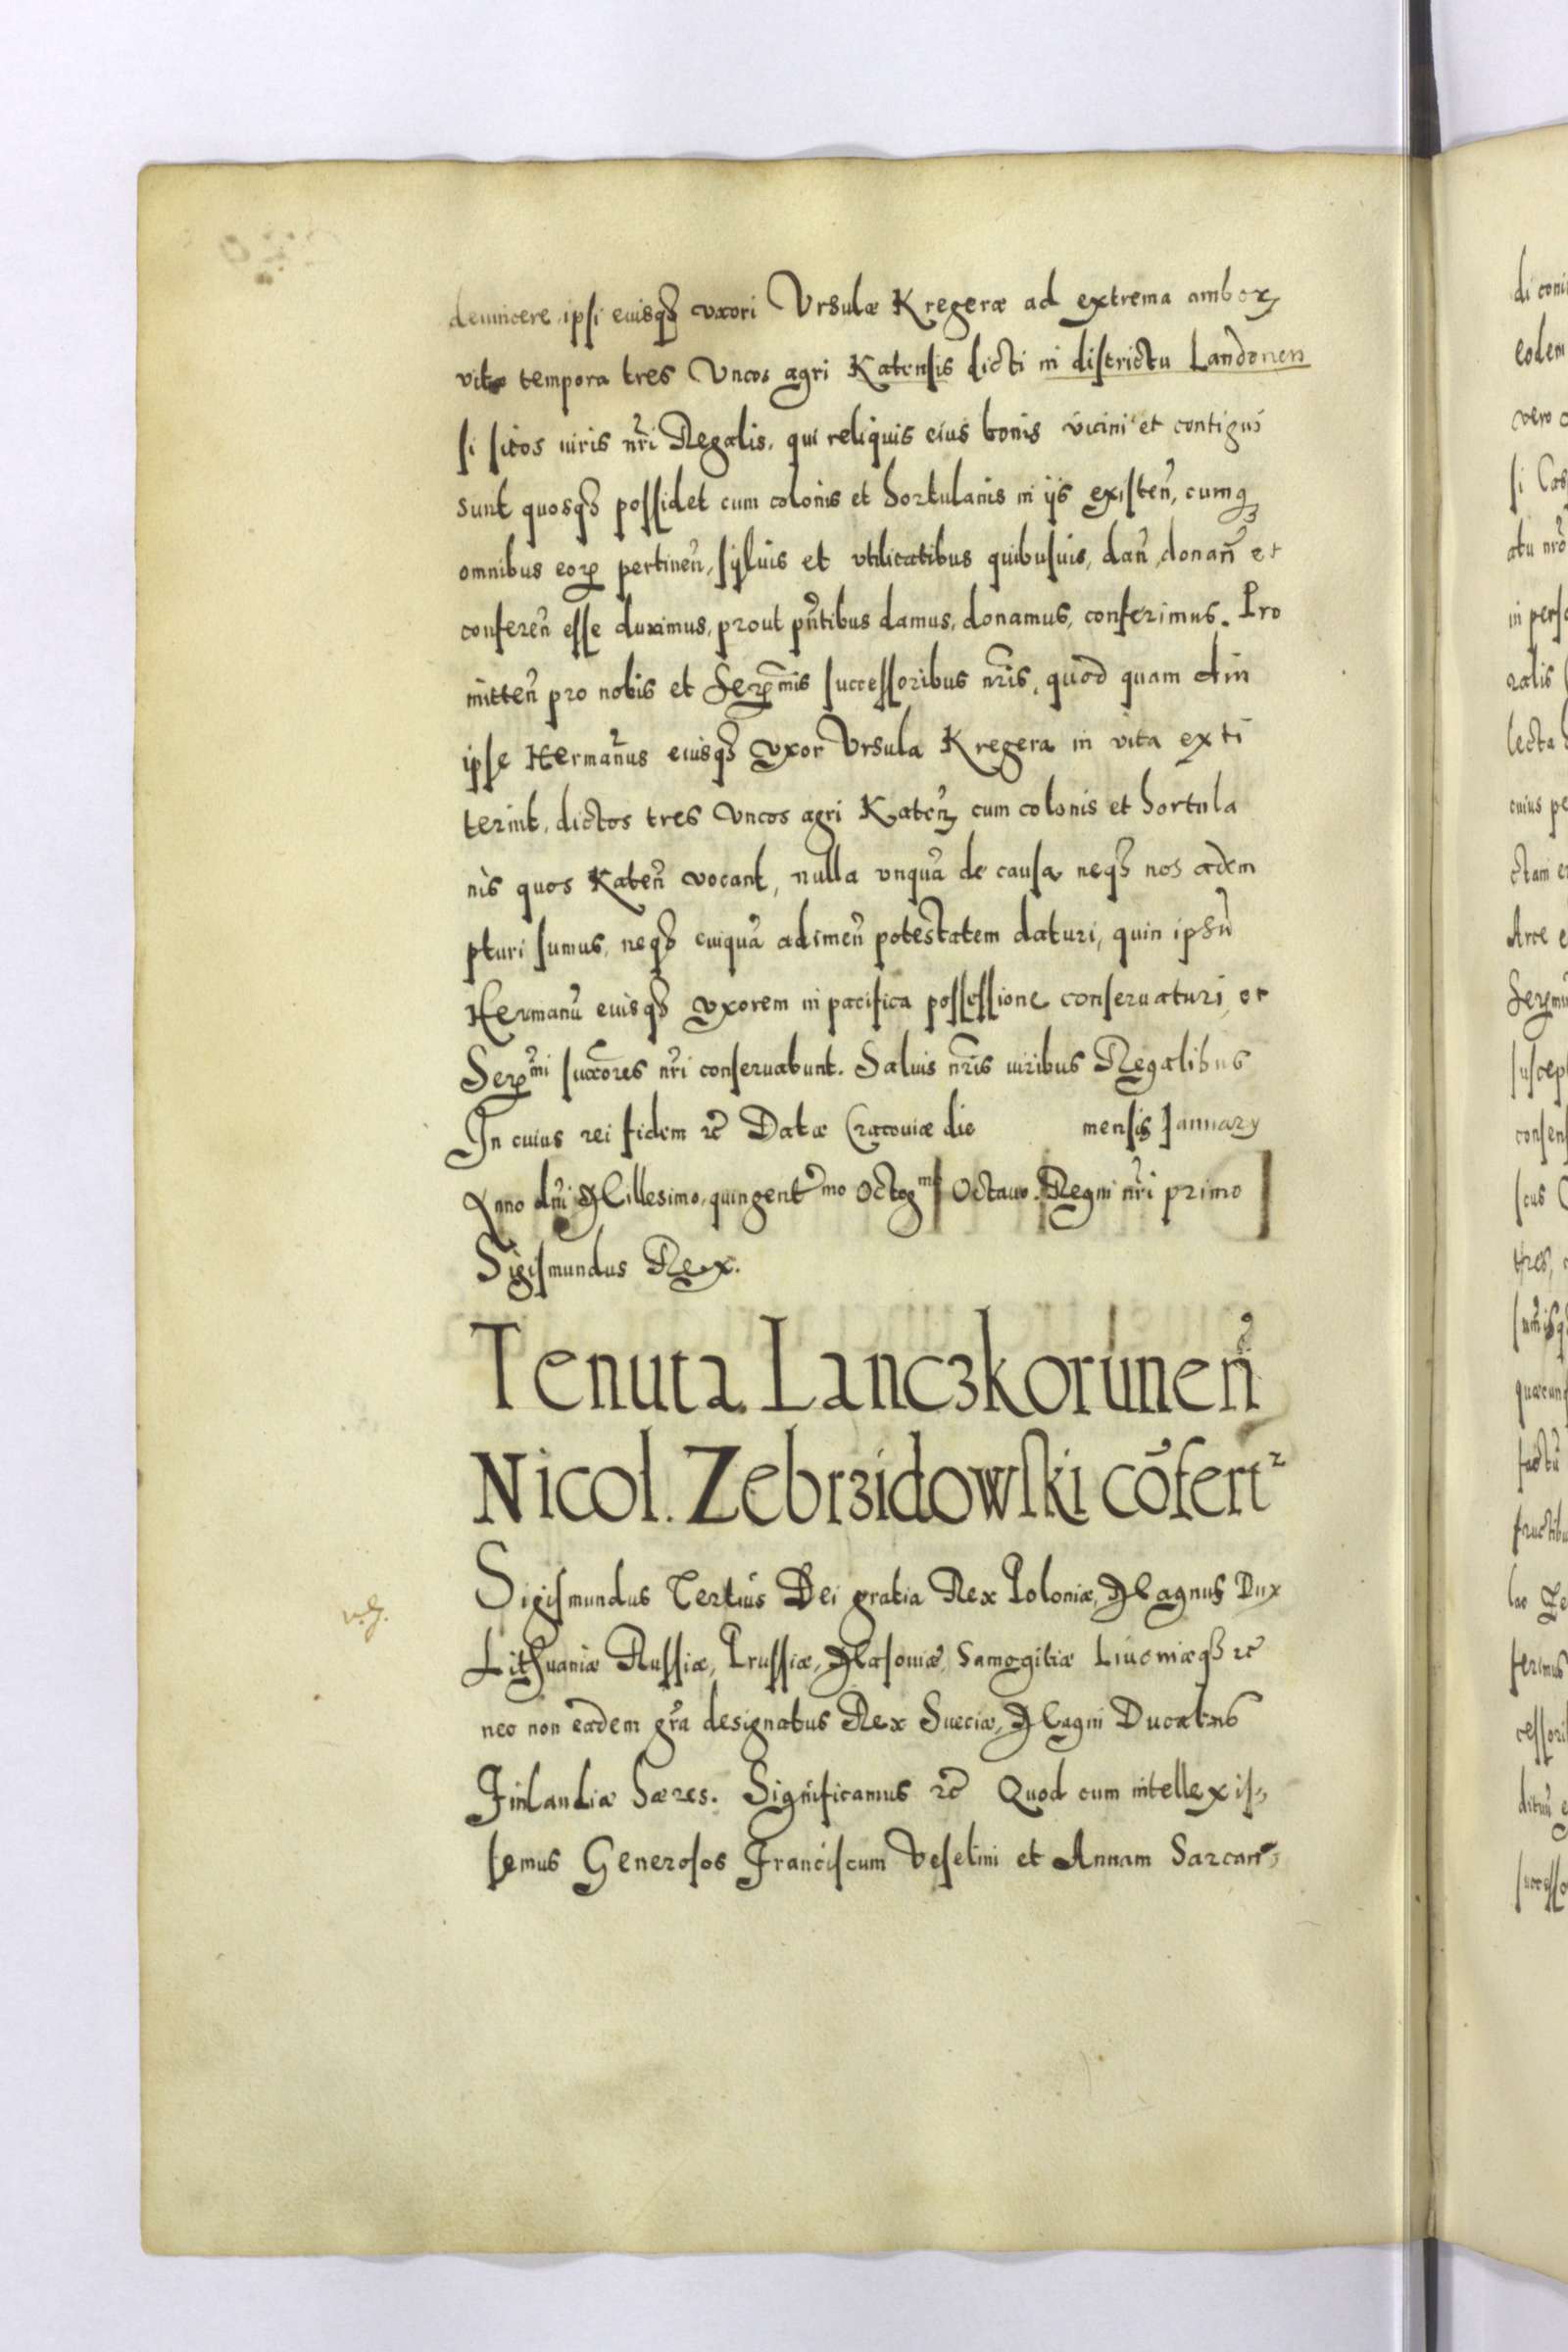 deuincere ipsi eiusq₃ uxori Vrsulæ Kregeræ ad extrema amboꝝ
vitæ tempora tres Vncos agri Katensis dicti in districtu Landonen
si sitos iuris nr̃i Regalis, qui reliquis eius bonis vicini et contigui
sunt quosq₃ possidet cum colonis et hortulanis in ijs existeñ, cumq₃
omnibus eoꝝ pertineñ, syluis et vtilitatibus quibusuis, dañ, donañ et
confereñ esse duximus, prout pñtibus damus, donamus, conferimus. Pro
mitteñ pro nobis et Serᵐⁱˢ successoribus nr̃is, quod quam diu
ipse Hermañus eiusq₃ vxor Vrsula Kregera in vita exti
terint, dictos tres vncos agri Kateñ cum colonis et hortula
nis quos Kateñ vocant, nulla vnquã de causa neq₃ nos adem
pturi sumus, neq₃ cuiquã adimeñ potestatem daturi, quin ipsũ
Hermanũ eiusq₃ vxorem in pacifica possessione conseruaturi, et
Serᵐⁱ succores nr̃i conseruabunt. Saluis nr̃is iuribus Regalibus
In cuius rei fidem ꝛc̃ Datæ Cracouiæ die mensis January
Anno dñi Millesimo, quingentᵐᵒ Octogᵐᵒ Octauo. Regni nr̃i primo
Sigismundus Rex.
Tenuta Lanczkoruneñ
Nicol. Zebrzidowski cõfert²
Sigismundus Tertius Dei gratia Rex Poloniæ, Magnus Dux
Lithuaniæ Russiæ, Prussiæ, Masouiæ, Samogitiæ Liuoniæq₃ ꝛc̃
nec non eadem gr̃a designatus Rex Sueciæ, Magni Ducatus
Finlandiæ hæres. Significamus ꝛc̃ Quod cum intellexis,,
semus Generosos Franciscum Veselini et Annam Sarcan,,